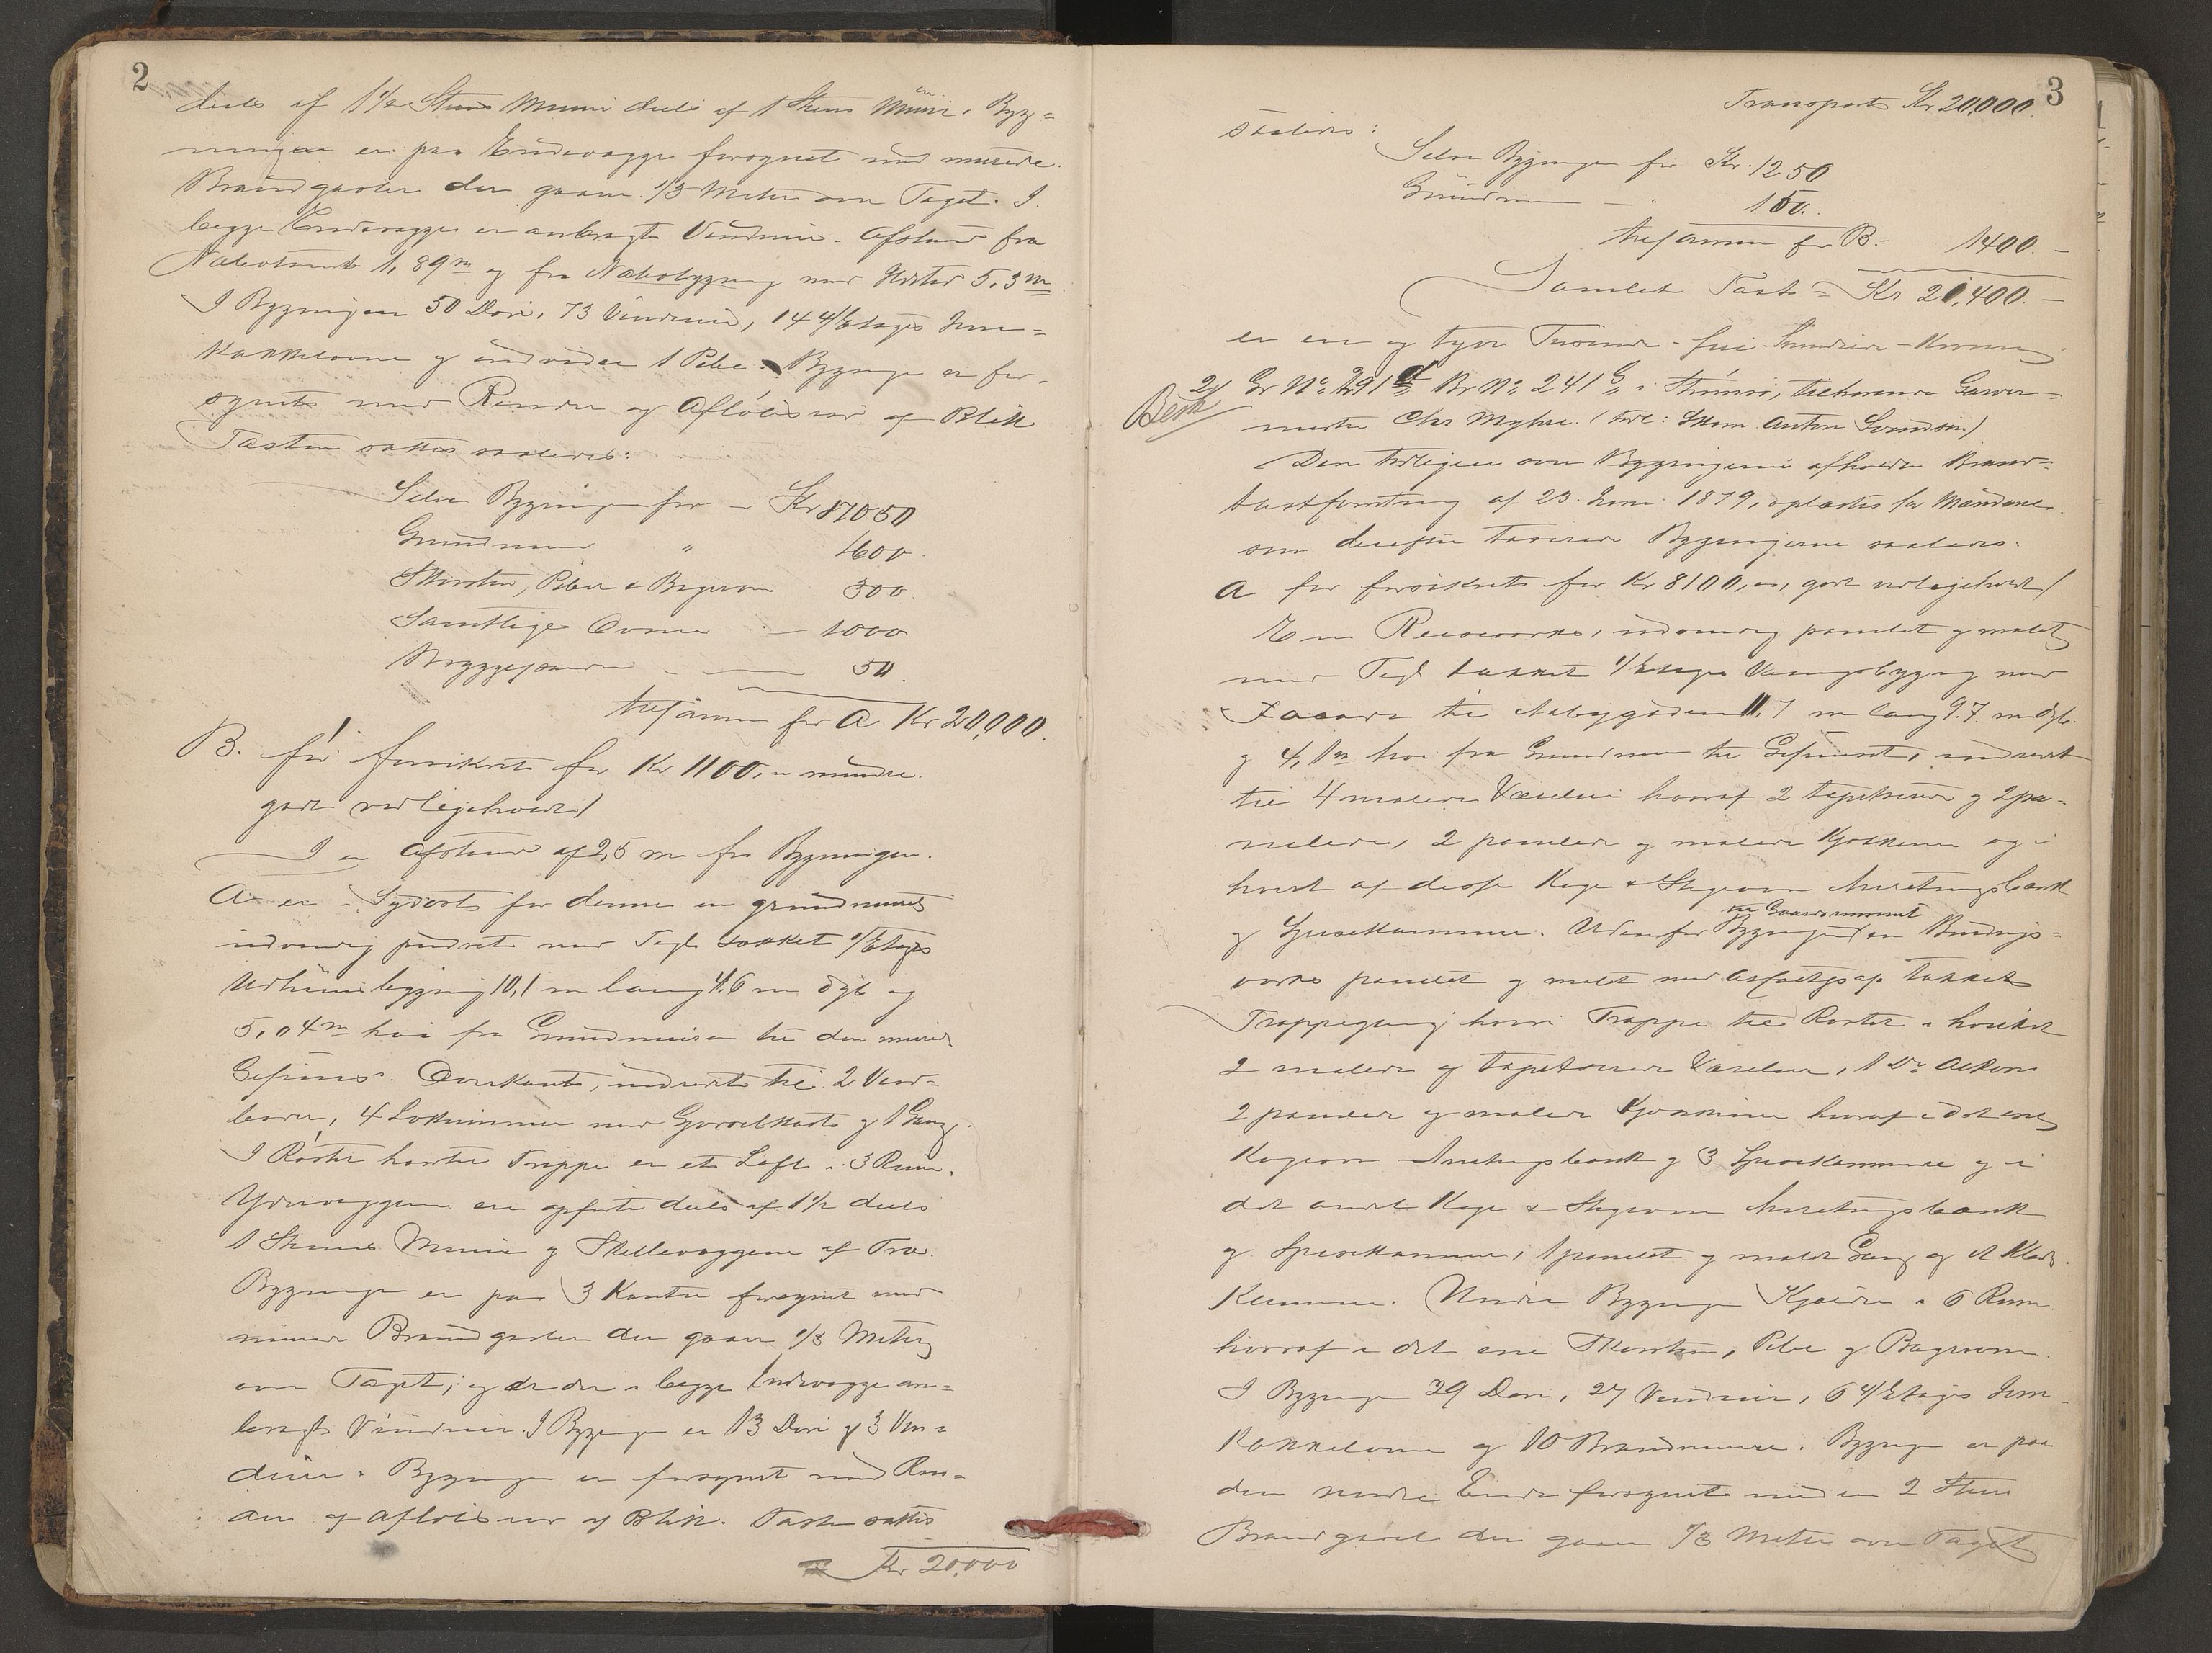 2
deels af 1 1/2 Stens Muur deels af 1 Stens Muur. Byg=
ningen er paa Endevægge forsynet med murede
Brandgavler der gaar 1/3 Meter over Taget. I
begge Endevægge er anbragte Vinduer. Afstand fra
Nabotomt 1,89 m og fra Nabobygning mod Nord 5,3 m.
I Bygningen 50 Døre, 73 Vinduer, 14 4/Etages Jern=
kakkelovne og 1 Pibe. Bygningen er for-
synet med Render og Afløbsrør af Blik
Taxten sattes saaledes:
Selve Bygningen for - Kr 17050
Grundmur " 1600.
Skorsten, Piber & Bagerovn 300.
Samtlige Ovne - 1000
Bryggepande - 50.
tilsammen for A. Kr 20,000.
B. før forsikret for Kr 1100, murede.
godt vedligeholdt/
I en Afstand af 2,5 m fra Bygningen
A er i Sydost for denne en grundmuret
udvendig pudset med Tegl takket 1/Etages
Udhusbygning 10,1 m lang 4,6 m dyb og
5,04 m høi fra Grundmuren til den murede
Gesims Overkant, indredet til 2 Ved=
boder, 4 Lokummer med Gjødselkast og 1 Gang.
I Røstet hvortil Trappe er et Loft i 3 Rum.
Ydervæggene ere opførte deels af 1 1/2 deels
1 Steens Muur og Skillevæggene af Træ.
Bygningen er paa 3 Kanter forsynet med
murede Brandgavler der gaar 1/3 Meter
over Taget; og er der i begge Endevægge an=
bragt Vinduer. I Bygningen er 13 Døre og 3 Vin=
duer. Bygningen er forsynet med Ren=
der og Afløbsrør af Blik. Taxten sattes
Kr 20,000
3
Transport Kr 20,000.
saaledes:
Selve Bygningen for Kr. 1250
Grundmuren - " 150.
tilsammen for B. - 1400. -
Samlet Taxt = Kr 21,400. -
er en og tyve Tusinde - fire Hundrede - Kroner
2/ Gr No 291 d Br No 241 G i Strømsø, tilhørende Garver-
Besk
mester Chr Myhre. (till: Skom. Anton Svendsen)
Den tidligere over Bygningerne afholdte Brand=
taxtforretning af 23 Juni 1879, oplæstes for Mændene
som derefter taxerede Bygningerne saaledes.
A før forsikret for Kr 8100,oo, godt vedligeholdt/
En Reisverks, udvendig panelet og malet
med Tegl takket 1/Etages Vaaningsbygning med
Facade til Nabygaden 11,7 m lang 9.7 m dyb
og 4,1 m høi fra Grundmur til Gesimset, indredet
til 4 malede Værelser hvoraf 2 tapetserede og 2 pa-
nelede, 2 panelede og malede Kjøkkener og i
hvert af disse Koge & Stegeovn Anretningsbænk
og Spisekammer. Udenfor Bygningen
til Gaardsrummet
en Bindings=
verks panelet og malet med Asfaltpap takket
Trappegang hvori Trappe til Røstet i hvilket
2 malede og tapetserede Værelser, 1 Do Alkove
2 panelede og malede Kjøkkener hvoraf i det ene
Kogeovn Anretningsbænk og 3 Spisekammere og i
det andet Koge & Stegeovn Anretningsbænk
og Spisekammer, 1 panelet og malet Gang og et Klæde-
kammer. Under Bygningen Kjælder i 6 Rum
hvoraf i det ene Skorsten, Pibe og Bagerovn.
I Bygningen 29 Døre, 27 Vinduer, 6 4/Etages Jern
Kakkelovne og 10 Brandmuure. Bygningen er paa
den nordre Ende forsynet med en 2 Stens
Brandgavl der gaar 1/3 Meter over Taget